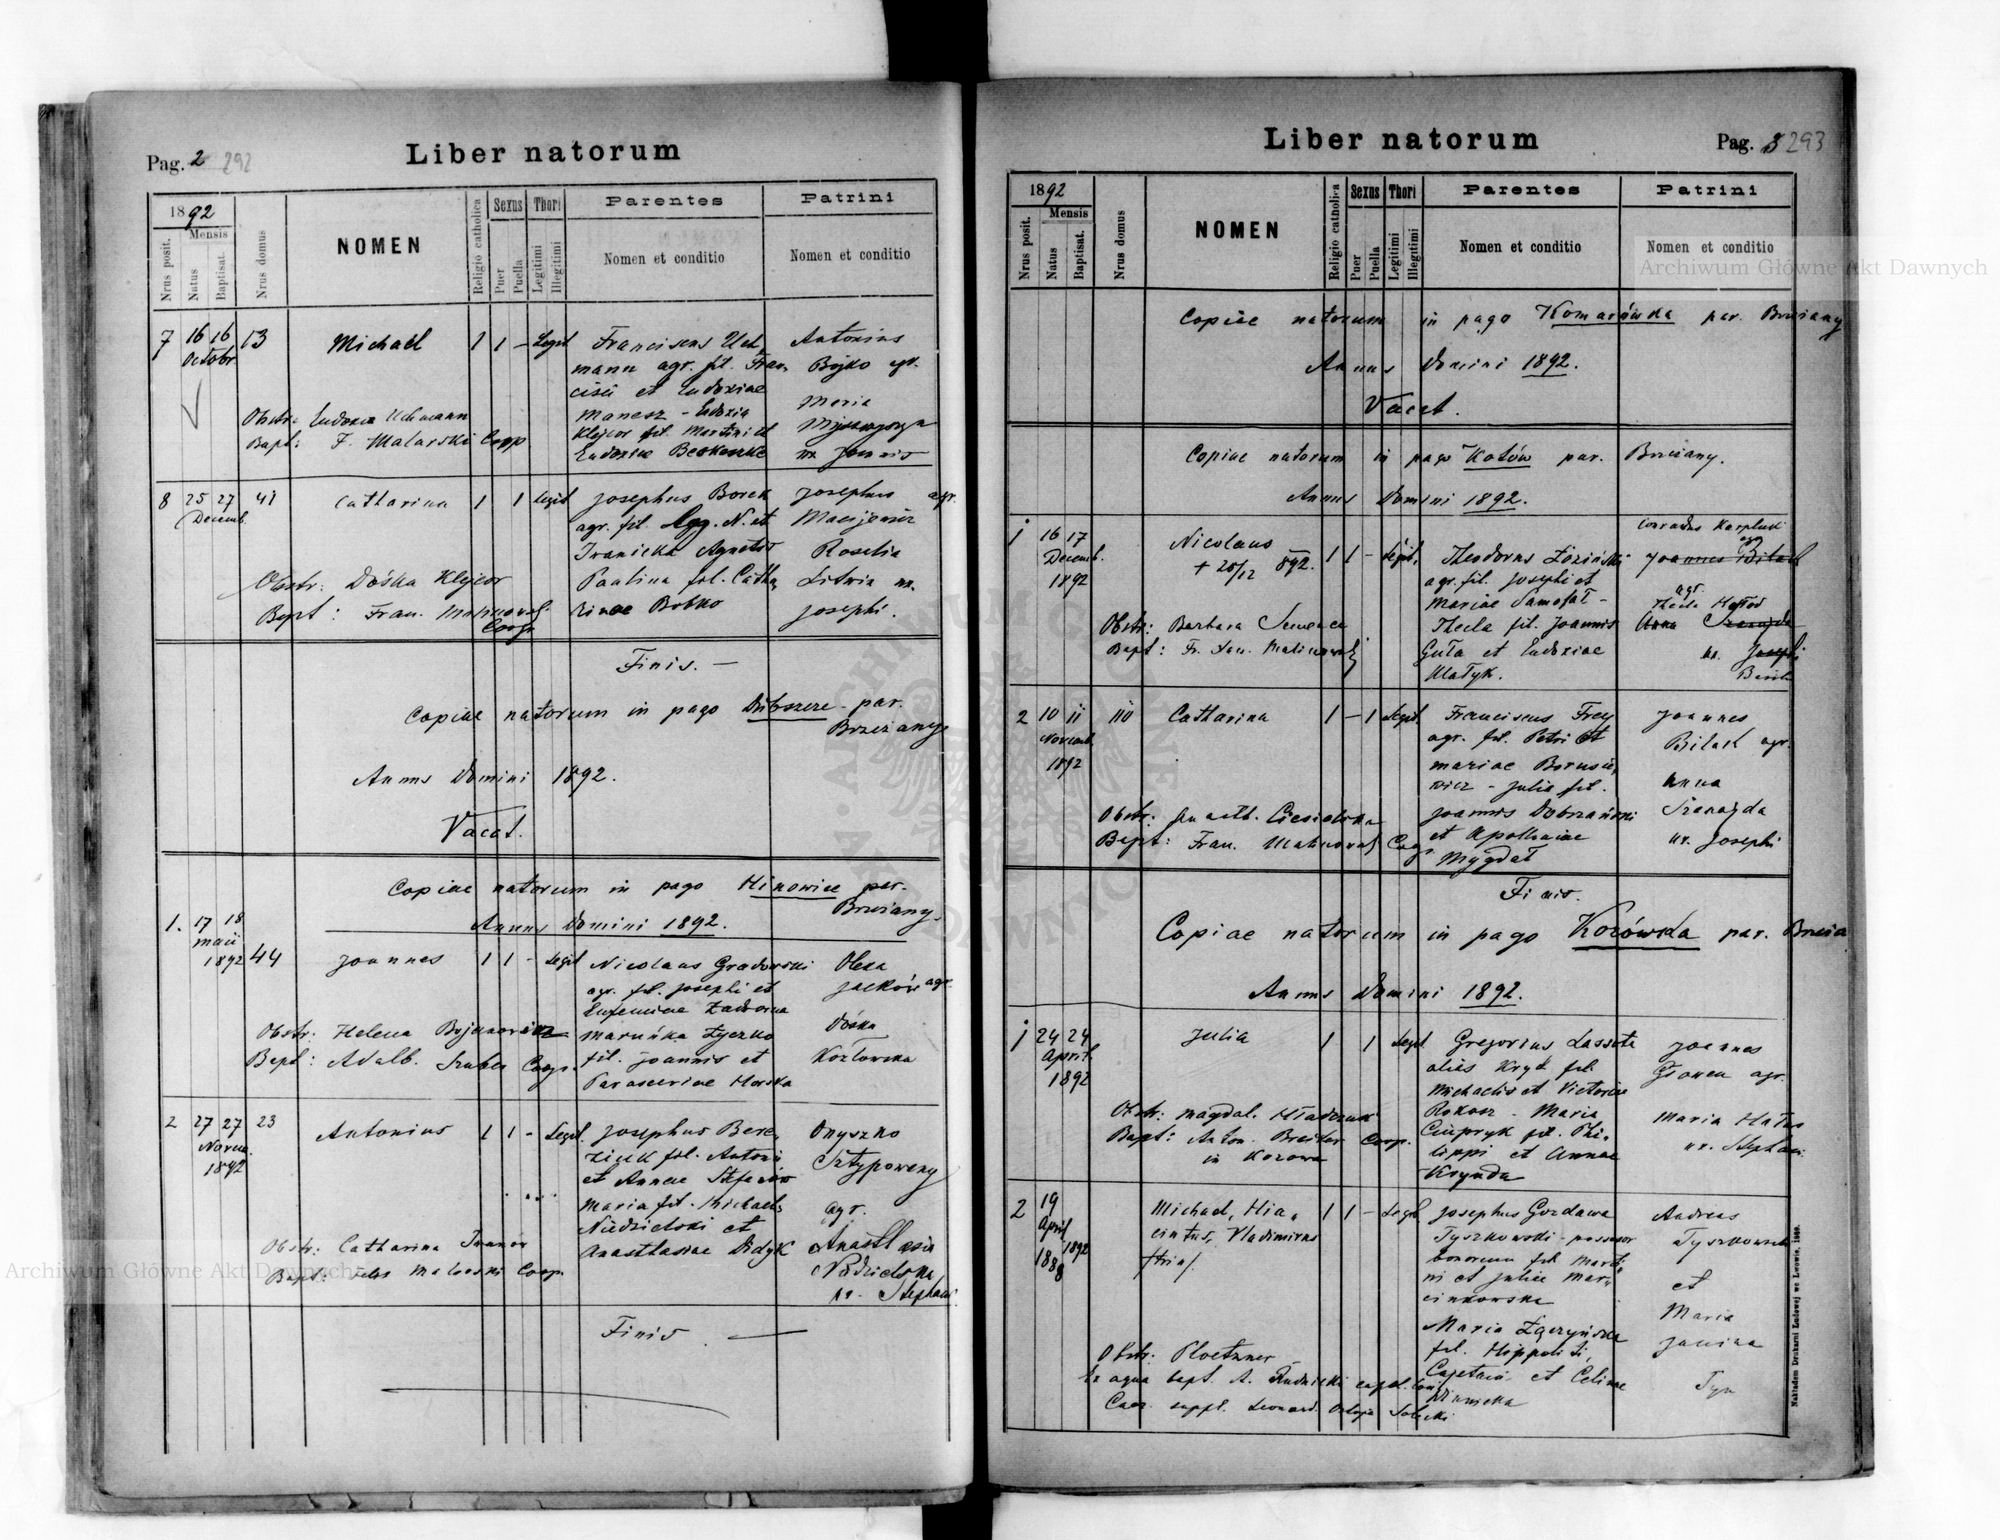 Pag. 2 292
Liber natorum
1892
Mensis
Nrus posit.
Natus
Baptisat.
Nrus domus
NOMEN
Religio catholica
Sexus
Puer
Puella
Thori
Legitimi
Illegitimi
Parentes
Nomen et conditio
Patrini
Nomen et conditio
7 16 16 13 Michael 1 1 - Legit Franciscus Uch
Octobr.
mann agr. fil. Fran
cisci et Eudoxiae
Manesz - Eudoxia
Klejcor fil. Martini et
Eudoxiae
Antonius
Bojko agr.
Maria
ux. Joannis
Obstr. Eudoxia Uchmann
Bapt: F. Malarski Coop
8 25 27 41 Catharina 1 1 Legit Josephus Borek
Decemb.
agr. fil. N. et
Iranicka Agnetis
Paulina fil. Catha
rinae Bobko
Josephus agr.
Rosalia
Litwin ux.
Josephi.
Obstr: Dośka Klejcor
Bapt: Fran.
Coop
Finis. —
Copiae natorum in pago Dubszcze par.
Brzeżany
Annus Domini 1892.
Vacat.
Copiae natorum in pago Hinowice par.
Brzeżany.
Annus Domini 1892.
1. 17 18
Maii
1892 44 Joannes 1 1 - Legit Nicolaus Gradowski
agr. fil. Josephi et
Eufemiae Zadworna
Maruńka Łyczko
fil. Joannis et
Parasceviae Horska
Olexa
Jacków agr.
Dośka
Kozłowska
Obstr: Helena
Bapt: Adalb. Szuber Coop.
2 27 27 23 Antonius 1 1 - Legit. Josephus Bere
Novem.
1892
ziuk fil. Antonii
et Annae Stefanów
Maria fil. Michaelis
Niedzielski et
Anasthasiae Didyk
Onyszko
Sztypoweny
agr.
Anasthasia
Nidzielska
ux. Stephani.
Obstr: Catharina Iwanów
Bapt: Coop.
Finis —
Liber natorum
Pag. 3 293
1892
Mensis
Nrus posit.
Natus
Baptisat.
Nrus domus
NOMEN
Religio catholica
Sexus
Puer
Puella
Thori
Legitimi
Illegitimi
Parentes
Nomen et conditio
Patrini
Nomen et conditio
Copiae natorum in pago Komarówka par. Brzeżany
Annus Domini 1892.
Vacat.
Copiae natorum in pago Kotów par. Brzeżany.
Annus Domini 1892.
1 16 17
Decemb.
1892
Nicolaus 1 1 - Legit.
+ 28/12 892.
Theodorus Łoziński
agr. fil. Josephi et
Mariae Samofał -
Thecla fil. Joannis
Guła et Eudoxiae
Ułatyk.
Conradus
agr
Joannes Bilak
agr.
Thecla
Anna Szarajda
ux. Josephi
Obstr: Barbara
Bapt: Fr.
2 10 11 110 Catharina 1 - 1 Legit. Franciscus Frey
Novemb.
1892
agr. fil. Petri et
Mariae Borusie
wicz - Julia fil.
Joannis Dobrzański
et Apolloniae
Mygdał
Joannes
Bilak agr.
Anna
Szarajda
ux. Josephi
Obstr: Ciesielska
Bapt: Fran. Coop.
Finis.
Copiae natorum in pago Kozówska par. Brzeża
Annus Domini 1892.
1 24 24
April
1892
Julia 1 1 Legit Gregorius Lassota
alias Kryd fil.
Michaelis et Victoriae
Rokosz - Maria
Ciupryk fil. Phi
lippi et Annae
Krynda
Joannes
agr.
Maria
ux. Stephani
Obstr: Magdal.
Bapt: Anton. Breiter Coop.
in Kozowa
2 19
April
1888 1892
Michael, Hia 1 1 - Legit
cintus, Vladimirus
/tria/
Josephus Gozdawa
Tyszkowski - possessor
bonorum fil. Marti
ni et Juliae Mar
cinkowska
Maria Łączyńska
fil. Hippoliti,
Cajetani et Celinae
Winnicka
Andreas
Tyszkowski
et
Maria
Janina
Obstr: Ploetzner
Ex aqua bapt. A. Rudnicki
Caer. suppl. Leonard.
Nakładem Drukarni Ludowej we Lwowie, 1889.
Archiwum Główne Akt Dawnych
Archiwum Główne Akt Dawnych